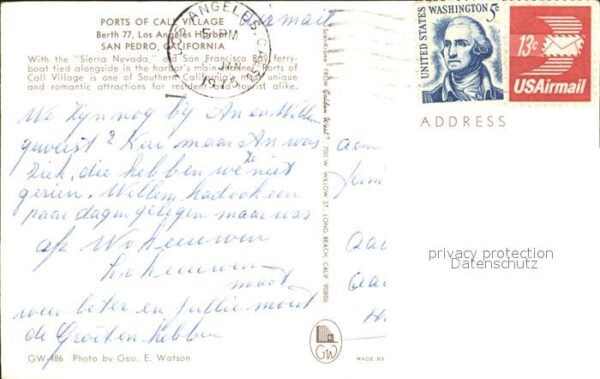 PORTS OF CALL VILLAGE
Berth 77, Los Angeles Harbor
SAN PEDRO, CALIFORNIA
With the "Sierra Nevada," old San Francisco Bay ferry-
boat tied alongside in the harbor's main channel, Ports of
Call Village is one of Southern California's most unique
and romantic attractions for resident and tourist alike.
LOS ANGELES, CA
PM
JAN
1975
Via mail
UNITED STATES
WASHINGTON 5c
13c
USAirmail
ADDRESS
We zyn nog by An en Willem
geweest maar An was
Ziek, die hebben we niet
gezien. Willem had ook een
paar dagen gelegen maar was
op
weer beter en jullie moest
de Groeten hebben
aan
privacy protection
Datenschutz
"Golden West" 700 W. WILLOW ST., LONG BEACH, CALIF. 90806
GW
MADE BY
GW-186 Photo by Geo. E. Watson